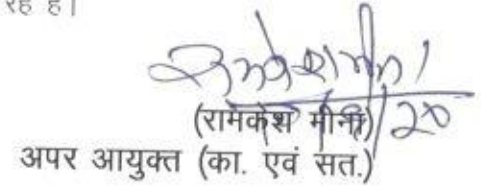 रहे हैं।
(रामकेश मीना)
अपर आयुक्त (का. एवं सत.)